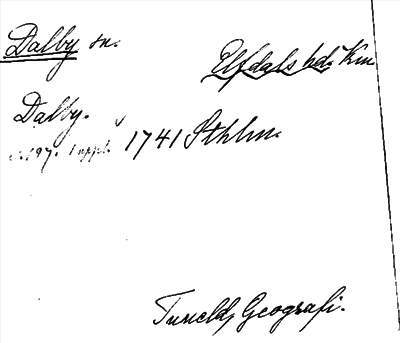 Dalby sn.
Elfdals hd. Krm
Dalby.
s. 197. 1 uppl. 1741 Sthlm.
Tuneld, Geografi.